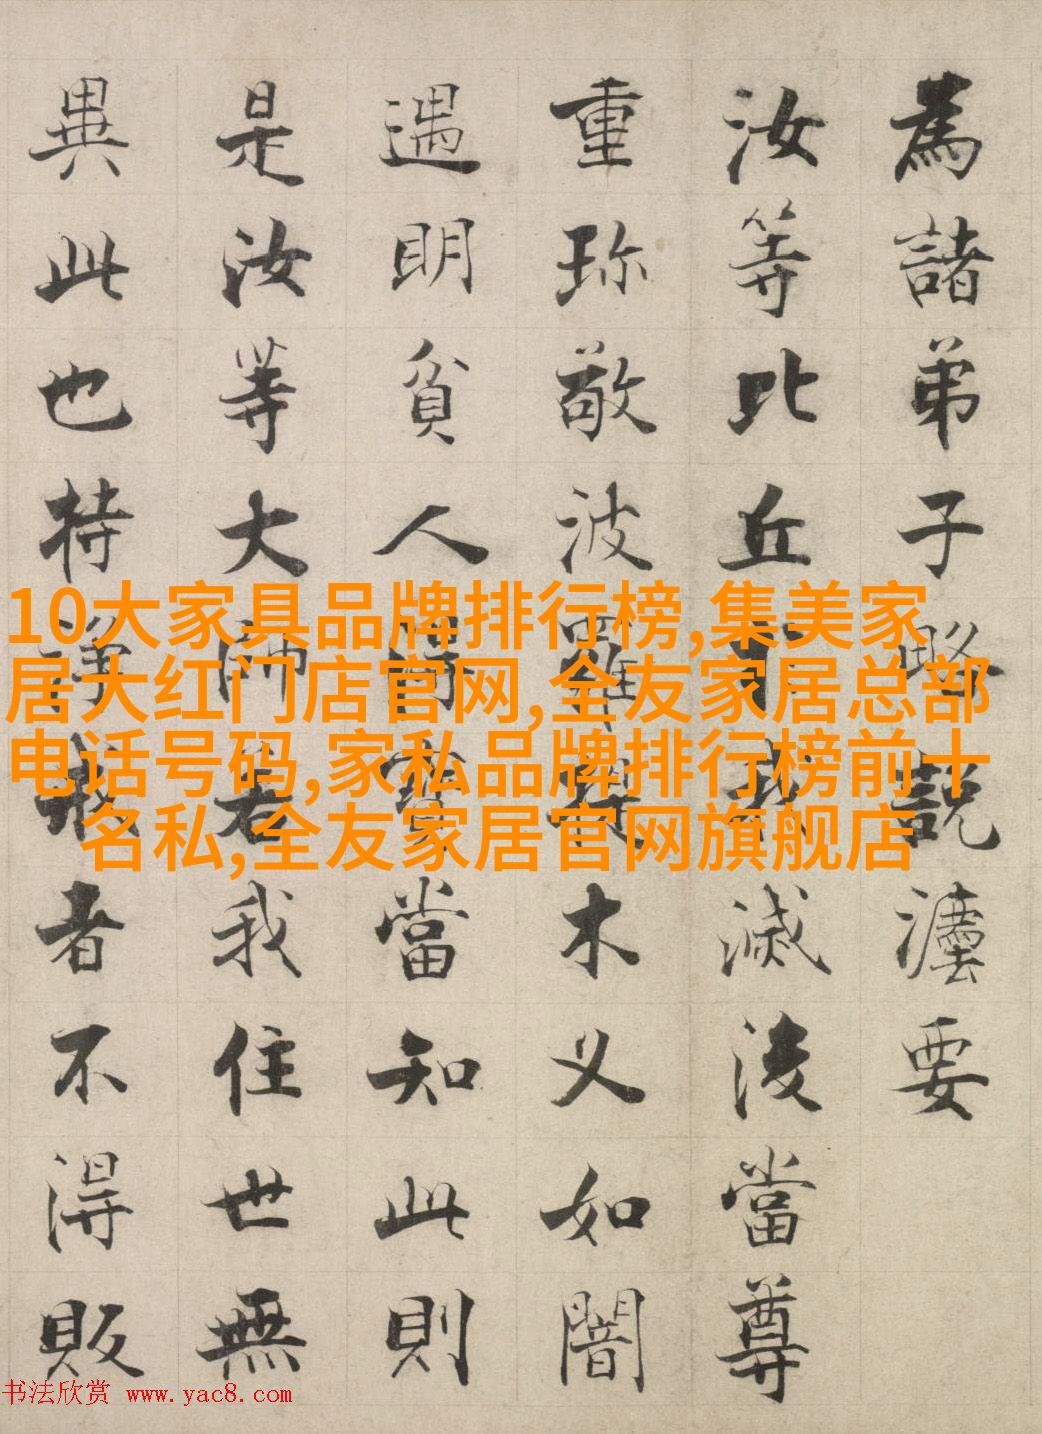 為諸弟子略説灋要
汝等比丘於我滅後當尊
重珎敬波羅提木叉如闇
遇明貧人得寶當知此則
是汝等大師若我住世無
異此也持淨戒者不得販
10大家具品牌排行榜,集美家
居大红门店官网,全友家居总部
电话号码,家私品牌排行榜前十
名私,全友家居官网旗舰店
书法欣赏 www.yac8.com